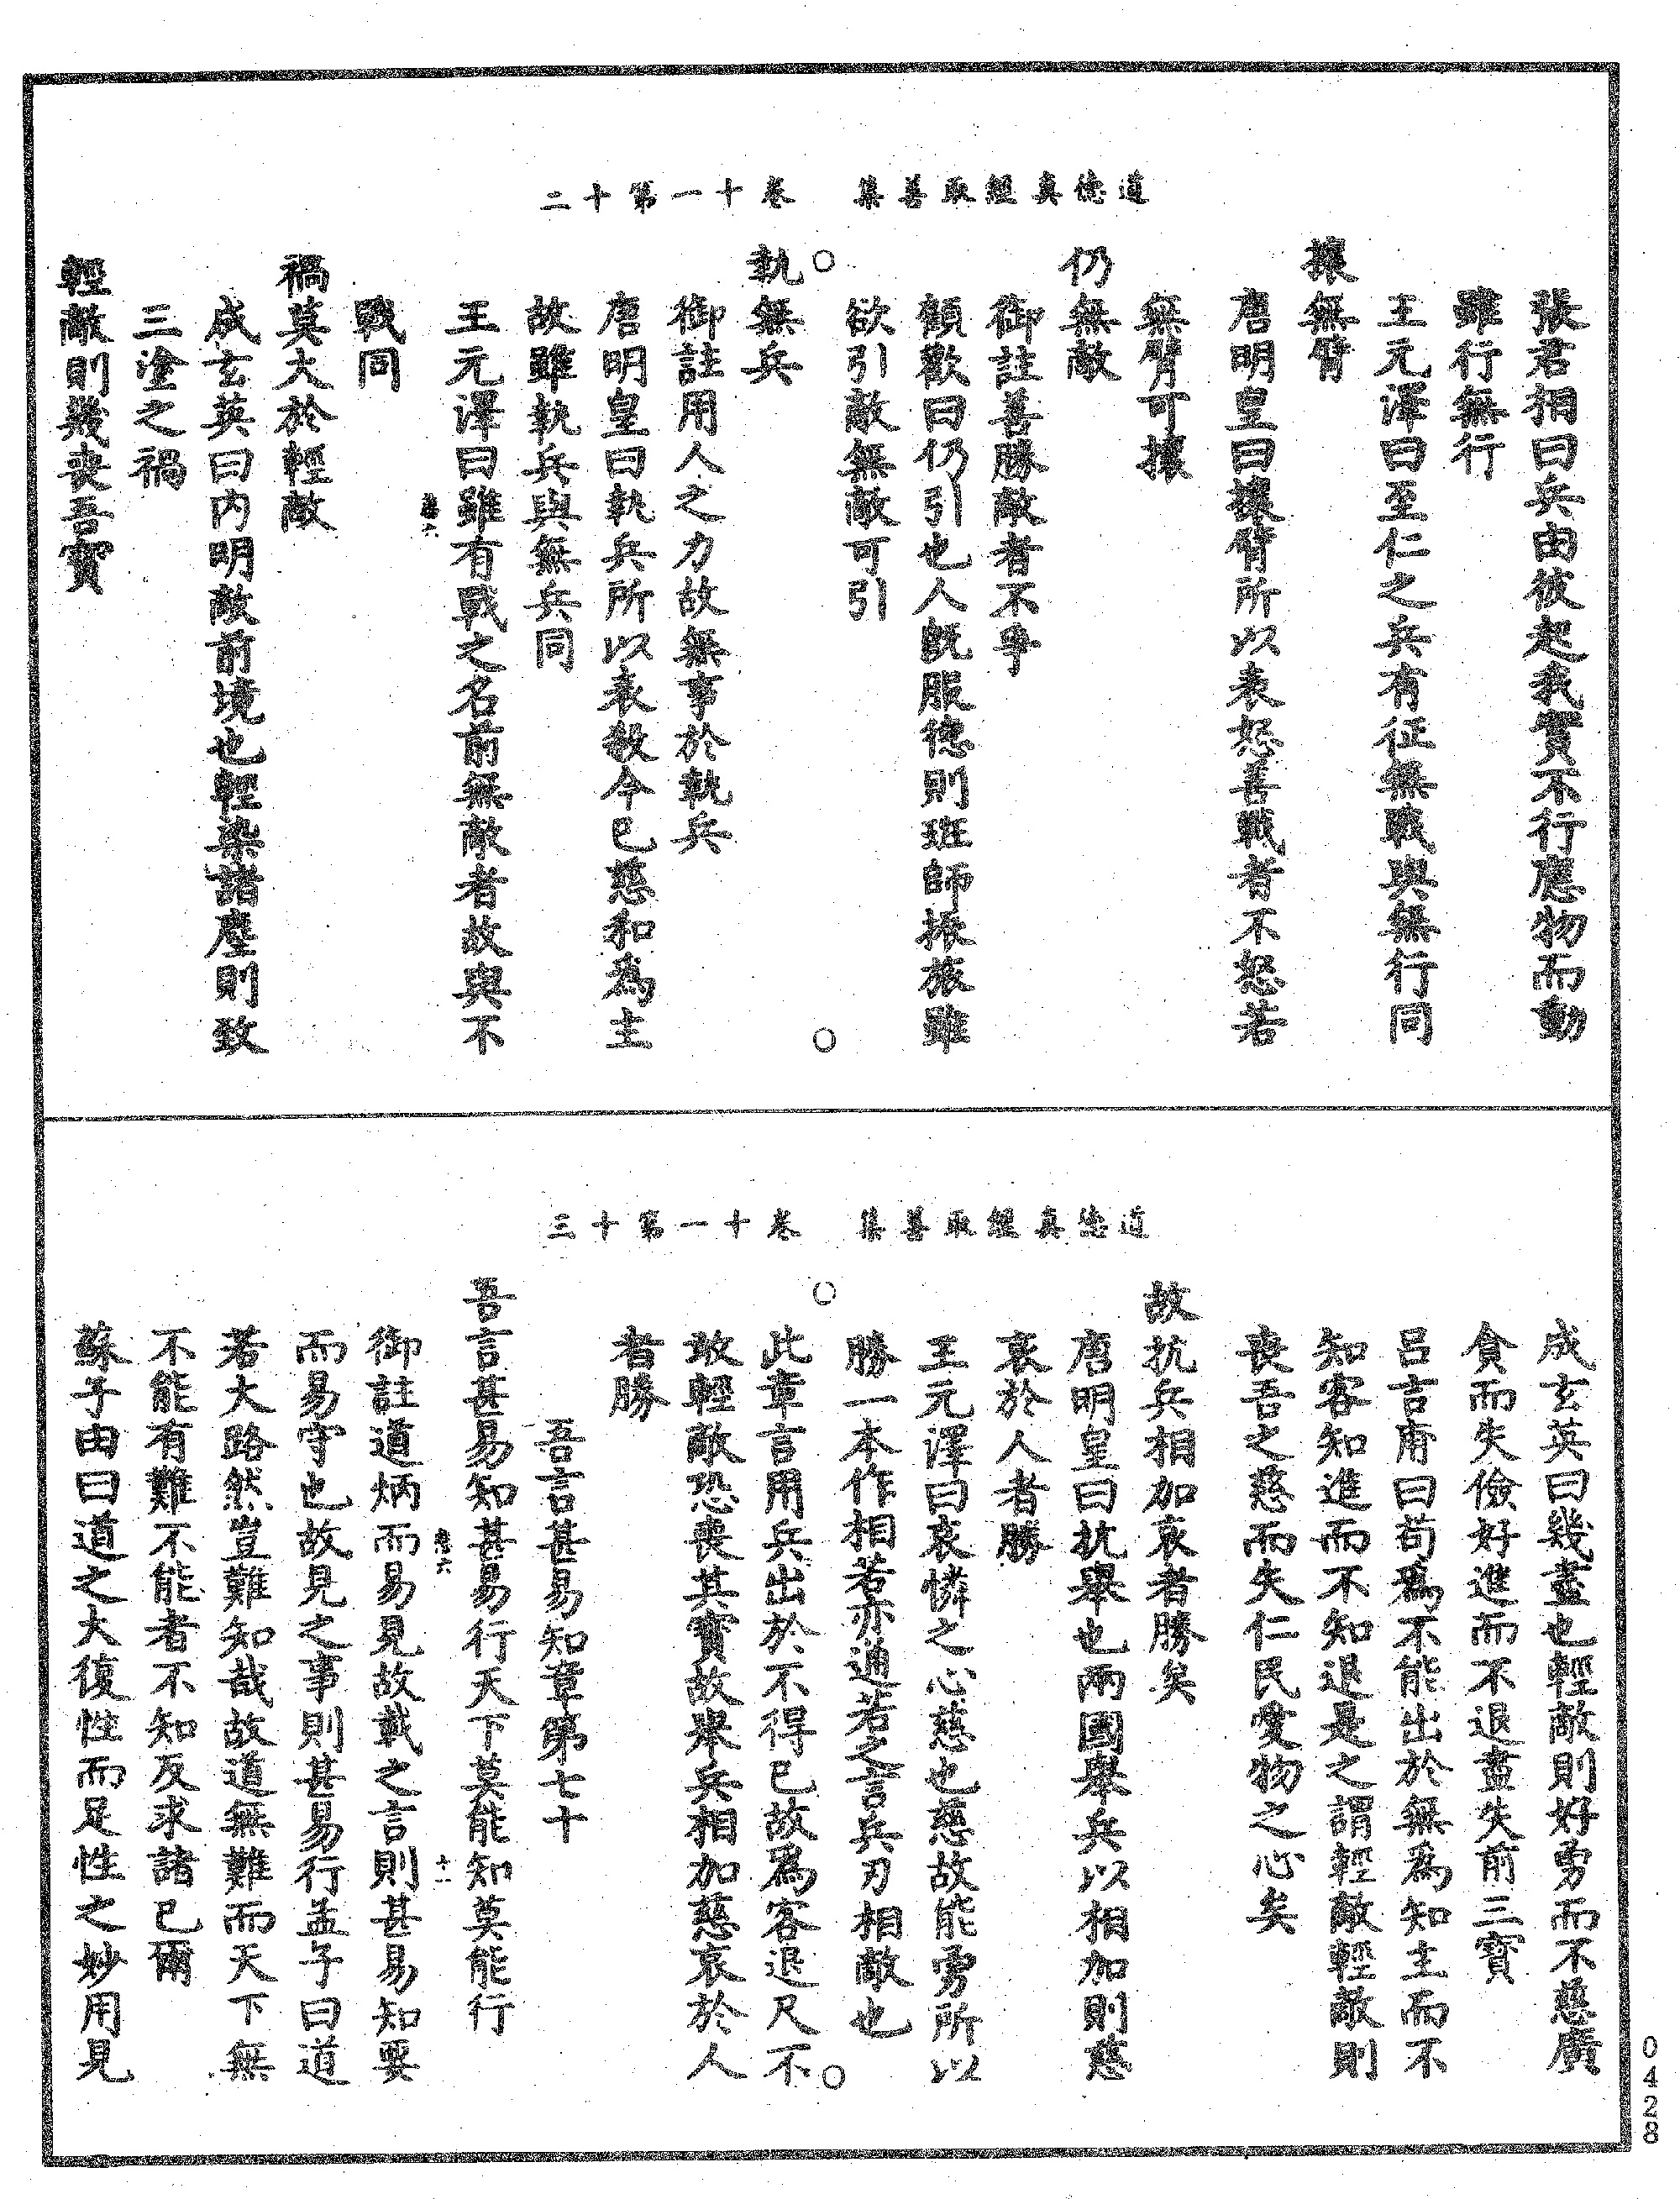 道德真經取善集　卷十一第十二
張君相曰兵由彼起我實不行應物而動
雖行無行
王元澤曰至仁之兵有征無戰與無行同
攘無臂
唐明皇曰攘臂所以表怒善戰者不怒若
無臂可攘
仍無敵
御註善勝敵者不爭
顧歡曰仍引也人既服德則班師振旅雖
欲引敵無敵可引
執無兵
御註用人之力故無事於執兵
唐明皇曰執兵所以表殺今已慈和為主
故雖執兵與無兵同
王元澤曰雖有戰之名前無敵者故與不
戰同
禍莫大於輕敵
成玄英曰内明敵前境也輕染諸塵則致
三塗之禍
輕敵則幾喪吾寶
道德真經取善集　卷十一第十三
成玄英曰幾盡也輕敵則好勇而不慈廣
貪而失儉好進而不退盡失前三寶
呂吉甫曰苟為不能出於無為知主而不
知客知進而不知退是之謂輕敵輕敵則
喪吾之慈而失仁民愛物之心矣
故抗兵相加哀者勝矣
唐明皇曰抗舉也兩國舉兵以相加則慈
哀於人者勝
王元澤曰哀憐之心慈也慈故能勇所以
勝一本作相若亦通若之言兵刃相敵也
此章言用兵出於不得已故為客退尺不
敢輕敵恐喪其寶故舉兵相加慈哀於人
者勝
吾言甚易知章第七十
吾言甚易知甚易行天下莫能知莫能行
御註道炳而易見故載之言則甚易知要
而易守也故見之事則甚易行孟子曰道
若大路然豈難知哉故道無難而天下無
不能有難不能者不知反求諸己爾
蘇子由曰道之大復性而足性之妙用見
0428